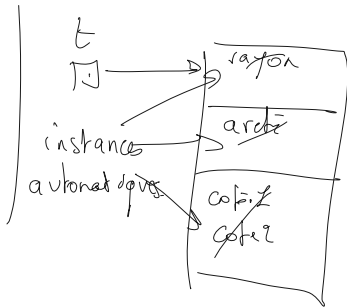 t
rayon
arete
instances
automatiques
cote1
cote2